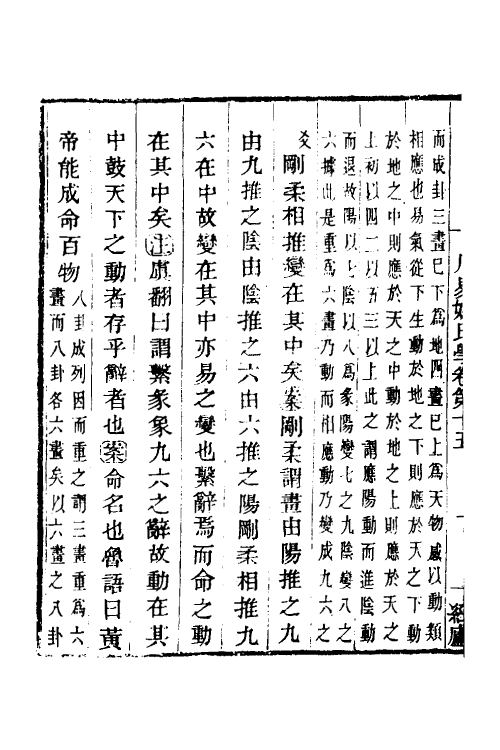 周易姚氏學卷第十五
而成卦三畫巳下爲地四畫巳上爲天物感以動類
相應也易氣從下生動於地之下則應於天之下動
於地之中則應於天之中動於地之上則應於天之
上初以四二以五三以上此之謂應陽動而進陰動
而退故陽以七陰以八爲彖陽變七之九陰變八之
六據此是重爲六畫乃動而相應動乃變成九六之
爻
剛柔相推變在其中矣案剛柔謂畫由陽推之九
由九推之陰由陰推之六由六推之陽剛柔相推九
六在中故變在其中亦易之變也繫辭焉而命之動
在其中矣注虞翻曰謂繫彖象九六之辭故動在其
中鼓天下之動者存乎辭者也案命名也魯語曰黃
帝能成命百物
八卦成列因而重之謂三畫重爲六
畫而八卦各六畫矣以六畫之八卦